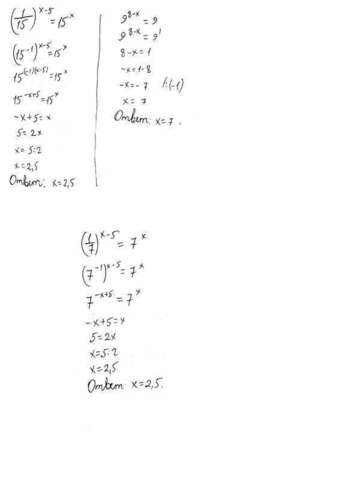 (1/15)^(x-5) = 15^x
(15^(-1))^(x-5) = 15^x
15^((-1)(x-5)) = 15^x
15^(-x+5) = 15^x
-x+5=x
5=2x
x=5:2
x=2,5
Ответ: x=2,5
9^(8-x) = 9
9^(8-x) = 9^1
8-x=1
-x=1-8
-x=-7 |:(-1)
x=7
Ответ: x=7.
(1/7)^(x-5) = 7^x
(7^(-1))^(x-5) = 7^x
7^(-x+5) = 7^x
-x+5=x
5=2x
x=5:2
x=2,5
Ответ x=2,5.